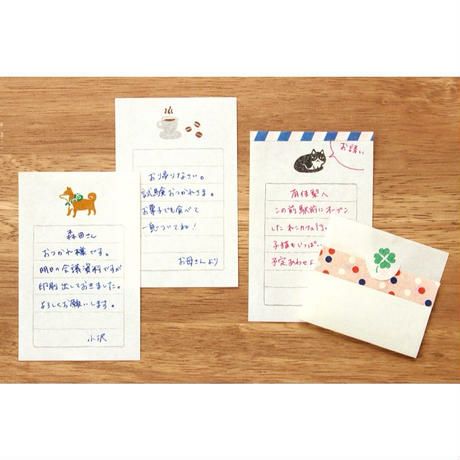 森田さん
おつかれ様です。
明日の会議資料ですが
印刷出しておきました。
よろしくお願いします。
小沢
おり帰りなさい。
試験おつかれさま。
お菓子でも食べて
気づつてね!
お母さんより
お誘い
この前駅前にオープン
したねこカフェ行
子猫もいっぱい
予定あわせよ